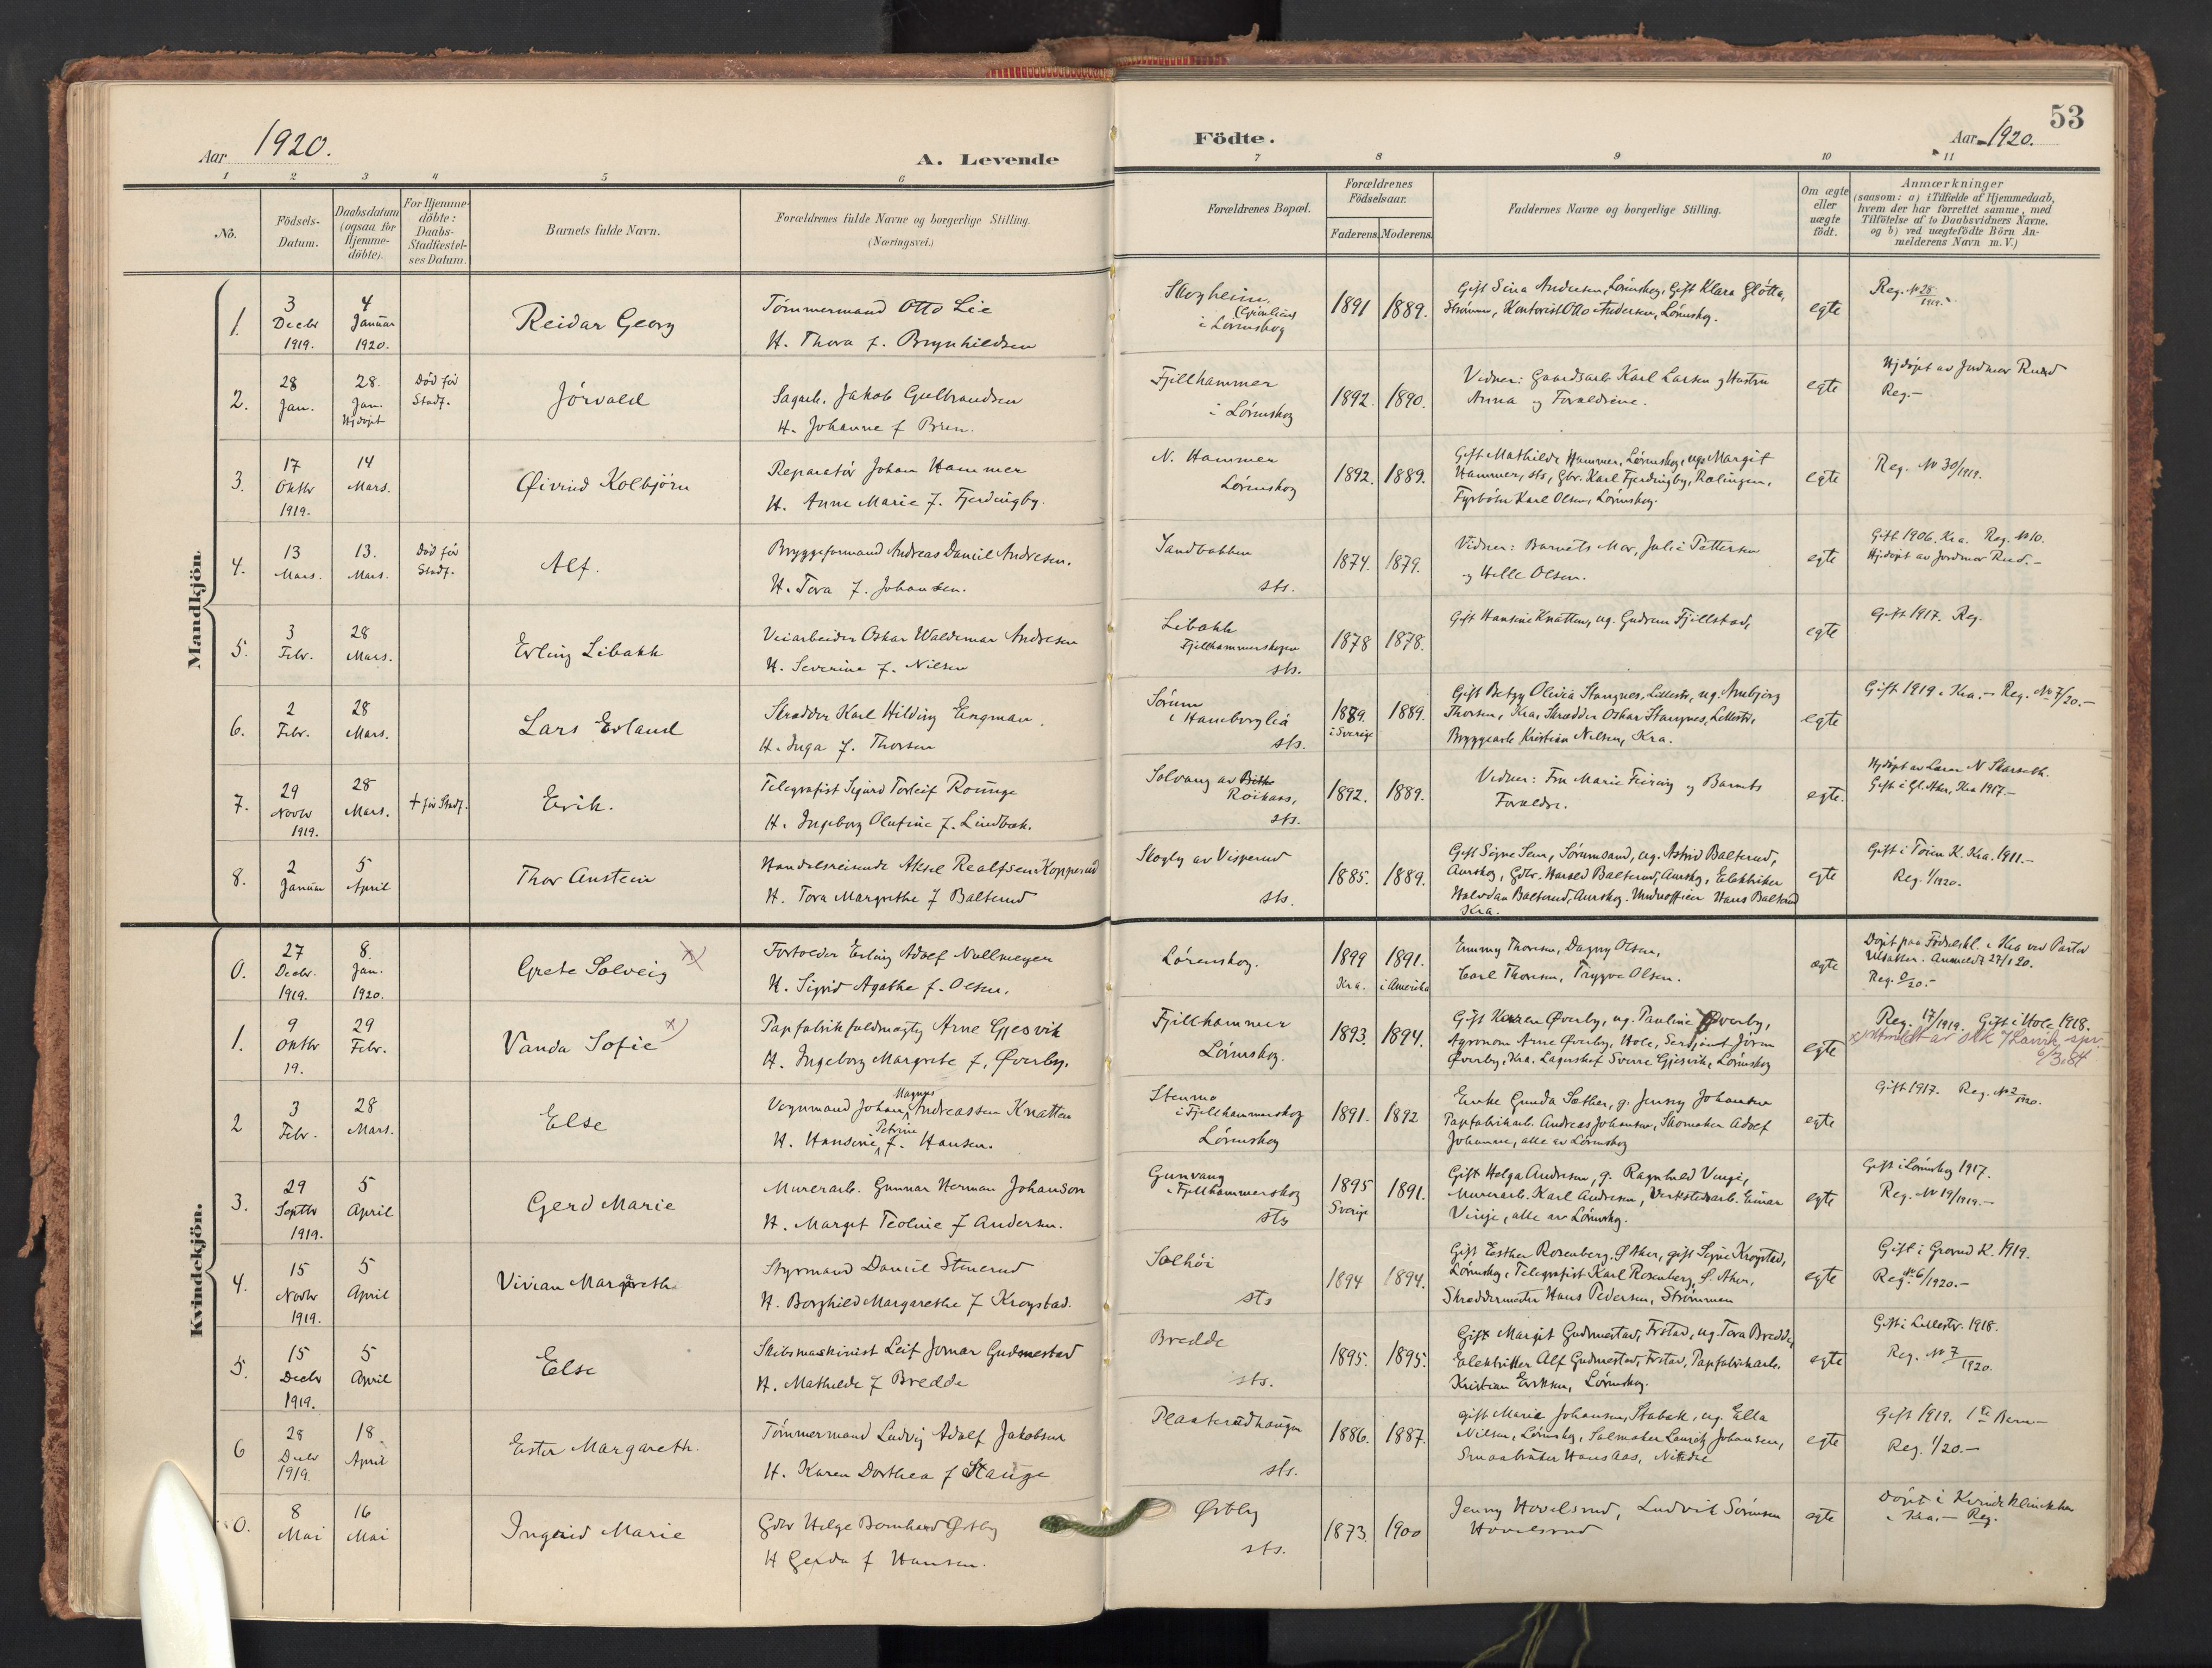 Aar 1920.
A. Levende
Födte.
Aar 1920.
53
1 2 3 4 5 6 7 8 9 10 11
No.
Födsels-Datum.
Daabsdatum (ogsaa for Hjemme-döbte).
For Hjemme-döbte: Daabs-Stadfæstel-ses Datum.
Barnets fulde Navn.
Forældrenes fulde Navne og borgerlige Stilling.
(Næringsvei.)
Forældrenes Bopæl.
Forældrenes Födselsaar.
Faderens. Moderens.
Faddernes Navne og borgerlige Stilling.
Om ægte eller uægte födt.
Anmærkninger
(saasom: a) i Tilfælde af Hjemmedaab,
hvem der har forrettet samme, med
Tilföielse af to Daabsvidners Navne,
og b) ved uægtefödte Börn An-
melderens Navn m. V.)
Mandkjön.
1. 3 Decbr 1919. 4 Januar 1920. Reidar Georg
Tømmermand Otto Lie
H. Thora f. Brynhildsen
Skogheim
i Lørenskog
1891 1889.
Gift Sina Andersen, Lørenskog, Gift Klara Glötta,
Strømmen, Kontorist Otto Andersen, Lørenskog.
egte
Reg. № 28/1919.
2. 28 Jan. 28. Jan. Hjdøpt Død før Stadf. Jørvald
Sagarb. Jakob Gulbrandsen
H. Johanne f Bren.
Fjellhammer
i Lørenskog
1892. 1890.
Vidner: Gaardsarb Karl Larsen og Hustru
Anna og Forældrene.
egte
Hjdøpt av Jordmor Ruud
Reg.-
3. 17 Oktbr 1919. 14 Mars. Øivind Kolbjörn
Reparatör Johan Hammer
H. Anne Marie f. Fjerdingby.
N. Hammer
Lørenskog
1892. 1889.
Gift Mathilde Hammer, Lørenskog, ug. Margit
Hammer, sts, Gbr. Karl Fjerdingby, Rælingen,
Fyrbøter Karl Olsen, Lørenskog.
egte
Reg. № 30/1919.
4. 13 Mars. 13. Mars. Død før Stadf. Alf.
Bryggeformand Andreas Daniel Andresen.
H. Tora f. Johansen.
Sandbakken
sts.
1874. 1879.
Vidner: Barnets Mor, Julie Pettersen
og Helle Olsen.
egte
Gift 1906. Kra. Reg. № 10.
Hjdøpt av Jordmor Rud.-
5. 3 Febr. 28 Mars. Erling Libakk
Veiarbeider Oskar Waldemar Andresen
H. Severine f. Nilsen
Libakk
Fjellhammerskogen
sts.
1878 1878.
Gift Hansine Knatten, ug. Gudrun Fjellstad,
egte
Gift 1917. Reg.
6. 2 Febr. 28 Mars. Lars Erland
Skrædder Karl Hilding Engman.
H. Inga f. Thorsen
Sörum
i Haneborglia
sts.
1889. i Sverige 1889.
Gift Betzy Olivia Stangnes, Lillestr, ug. Arnbjørg
Thorsen, Kra, Skrædder Oskar Stangnes, Lillestr,
Bryggearb Kristian Nilsen, Kra.
egte
Gift 1919 i Kra.- Reg. № 7/20.-
7. 29 Novbr 1919. 28 Mars. + før Stadf. Erik.
Telegrafist Sigurd Torleif Rounge
H. Ingeborg Olufine f. Lindbæk.
Solvang av
Røikaas,
sts.
1892. 1889.
Vidner: Fru Marie Feiring og Barnets
Forældre.
egte.
Hjdøpt av Lærer N Skarseth.
Gift i Gl. Aker, Kra 1917.-
8. 2 Januar 5 April Thor Anstein
Handelsreisende Aksel Realfsen Kopperud
H. Tora Margrethe f Balterud
Skogly av Visperud
sts.
1885. 1889.
Gift Signe Sem, Sørumsand, ug. Astrid Balterud,
Aurskog, Gdbr. Harald Balterud, Aurskog, Elektriker
Halvdan Balterud, Aurskog. Underofficer Hans Balterud
Kra.
egte
Gift i Tøien K. Kra. 1911.-
Reg. 1/1920.
Kvindekjön.
0. 27 Decbr. 1919. 8. Jan. 1920. Grete Solveig x)
Fortolder Erling Adolf Nullmeyer
H. Sigrid Agathe f. Olsen.
Lørenskog.
1899 Kra. 1891. i Amerika
Emmy Thoresen, Dagny Olsen,
Carl Thoresen, Trygve Olsen.
ægte
Døpt paa Fødselskl. i Kra ved Pastor
Anmeldt 27/1 20.
Reg. 0/20.-
1. 9 Oktbr 19. 29 Febr. Vanda Sofie x)
Papfabrikfuldmægtig Arne Gjesvik
H. Ingeborg Margrete f. Øverby.
Fjellhammer
Lørenskog.
1893. 1894.
Gift Karen Øverby, ug. Pauline Øverby,
Agronom Arne Øverby, Hole, Serdjant Jören
Øverby, Kra. Lagerchef Sverre Gjesvik, Lørenskog
egte
Reg. 17/1919. Gift i Hole 1918.
x) Utmeldt av
2 3 Febr. 28 Mars. Else
Vognmand Johan Magnus Andreassen Knatten
H. Hansine Petrine f. Hansen.
Stenmo
i Fjellhammerskog
Lørenskog
1891. 1892
Enke Gunda Sæther, g. Jenny Johansen
Papfabrikarb. Andreas Johansen, Skomaker Adolf
Johansen, alle av Lørenskog
egte
Gift 1917. Reg. № 2/1920.
3. 29 Septbr 1919. 5 April Gerd Marie
Murerarb. Gunnar Herman Johanson
H. Margit Teoline f Andersen.
Gunvang
i Fjellhammerskog
sts
1895 Sverige 1891.
Gift Helga Andresen, g. Ragnhild Vinje,
Murerarb. Karl Andresen, Verkstedsarb. Einar
Vinje, alle av Lørenskog.
egte
Gift i Lørenskog 1917.
Reg. № 19/1919.-
4. 15 Novbr 1919. 5 April Vivian Margareth
Styrmand Daniel Stenerud
H. Borghild Margarethe f Krogstad.
Solhöi
sts
1894 1894.
Gift Esther Rosenberg, Ø Aker, gift Signe Krogstad,
Lørenskog, Telegrafist Karl Rosenberg, Ø. Aker,
Skræddermester Hans Pedersen, Strømmen
egte
Gift i Grorud K. 1919.
Reg. № 6/1920.-
5. 15 Decbr 1919. 5 April Else
Skibsmaskinist Leif Jomar Gudmestad
H. Mathilde f Bredde
Bredde
sts.
1895. 1895.
Gift Margit Gudmestad, Frstad, ug. Tora Bredde,
Elektriker Alf Gudmestad, Frstad, Papfabrikarb.
Kristian Eriksen, Lørenskog.
egte
Gift i Lillestr. 1918.
Reg. № 7/1920.
6 28 Decbr 1919. 18 April Ester Margareth.
Tömmermand Ludvig Adolf Jakobsen
H. Karen Dorthea f Stange
Plasterudhaugen
sts.
1886. 1887.
Gift Marie Johansen, Stabæk, ug. Ella
Nilsen, Lørenskog, Salmaker Lauritz Johansen,
Smaabruker Hans Aas, Nitedal
egte
Gift 1919. 1ste Barn-
Reg. 1/20.-
0. 8 Mai 16 Mai Ingrid Marie
Gdbr Helge Bernhard Østby
H Gerda f Hansen.
Østby
sts.
1873. 1900
Jenny Hovelsrud, Ludvik Sørensen
Hovelsrud
egte
Døpt i Kvindeklinikken
i Kra.- Reg.